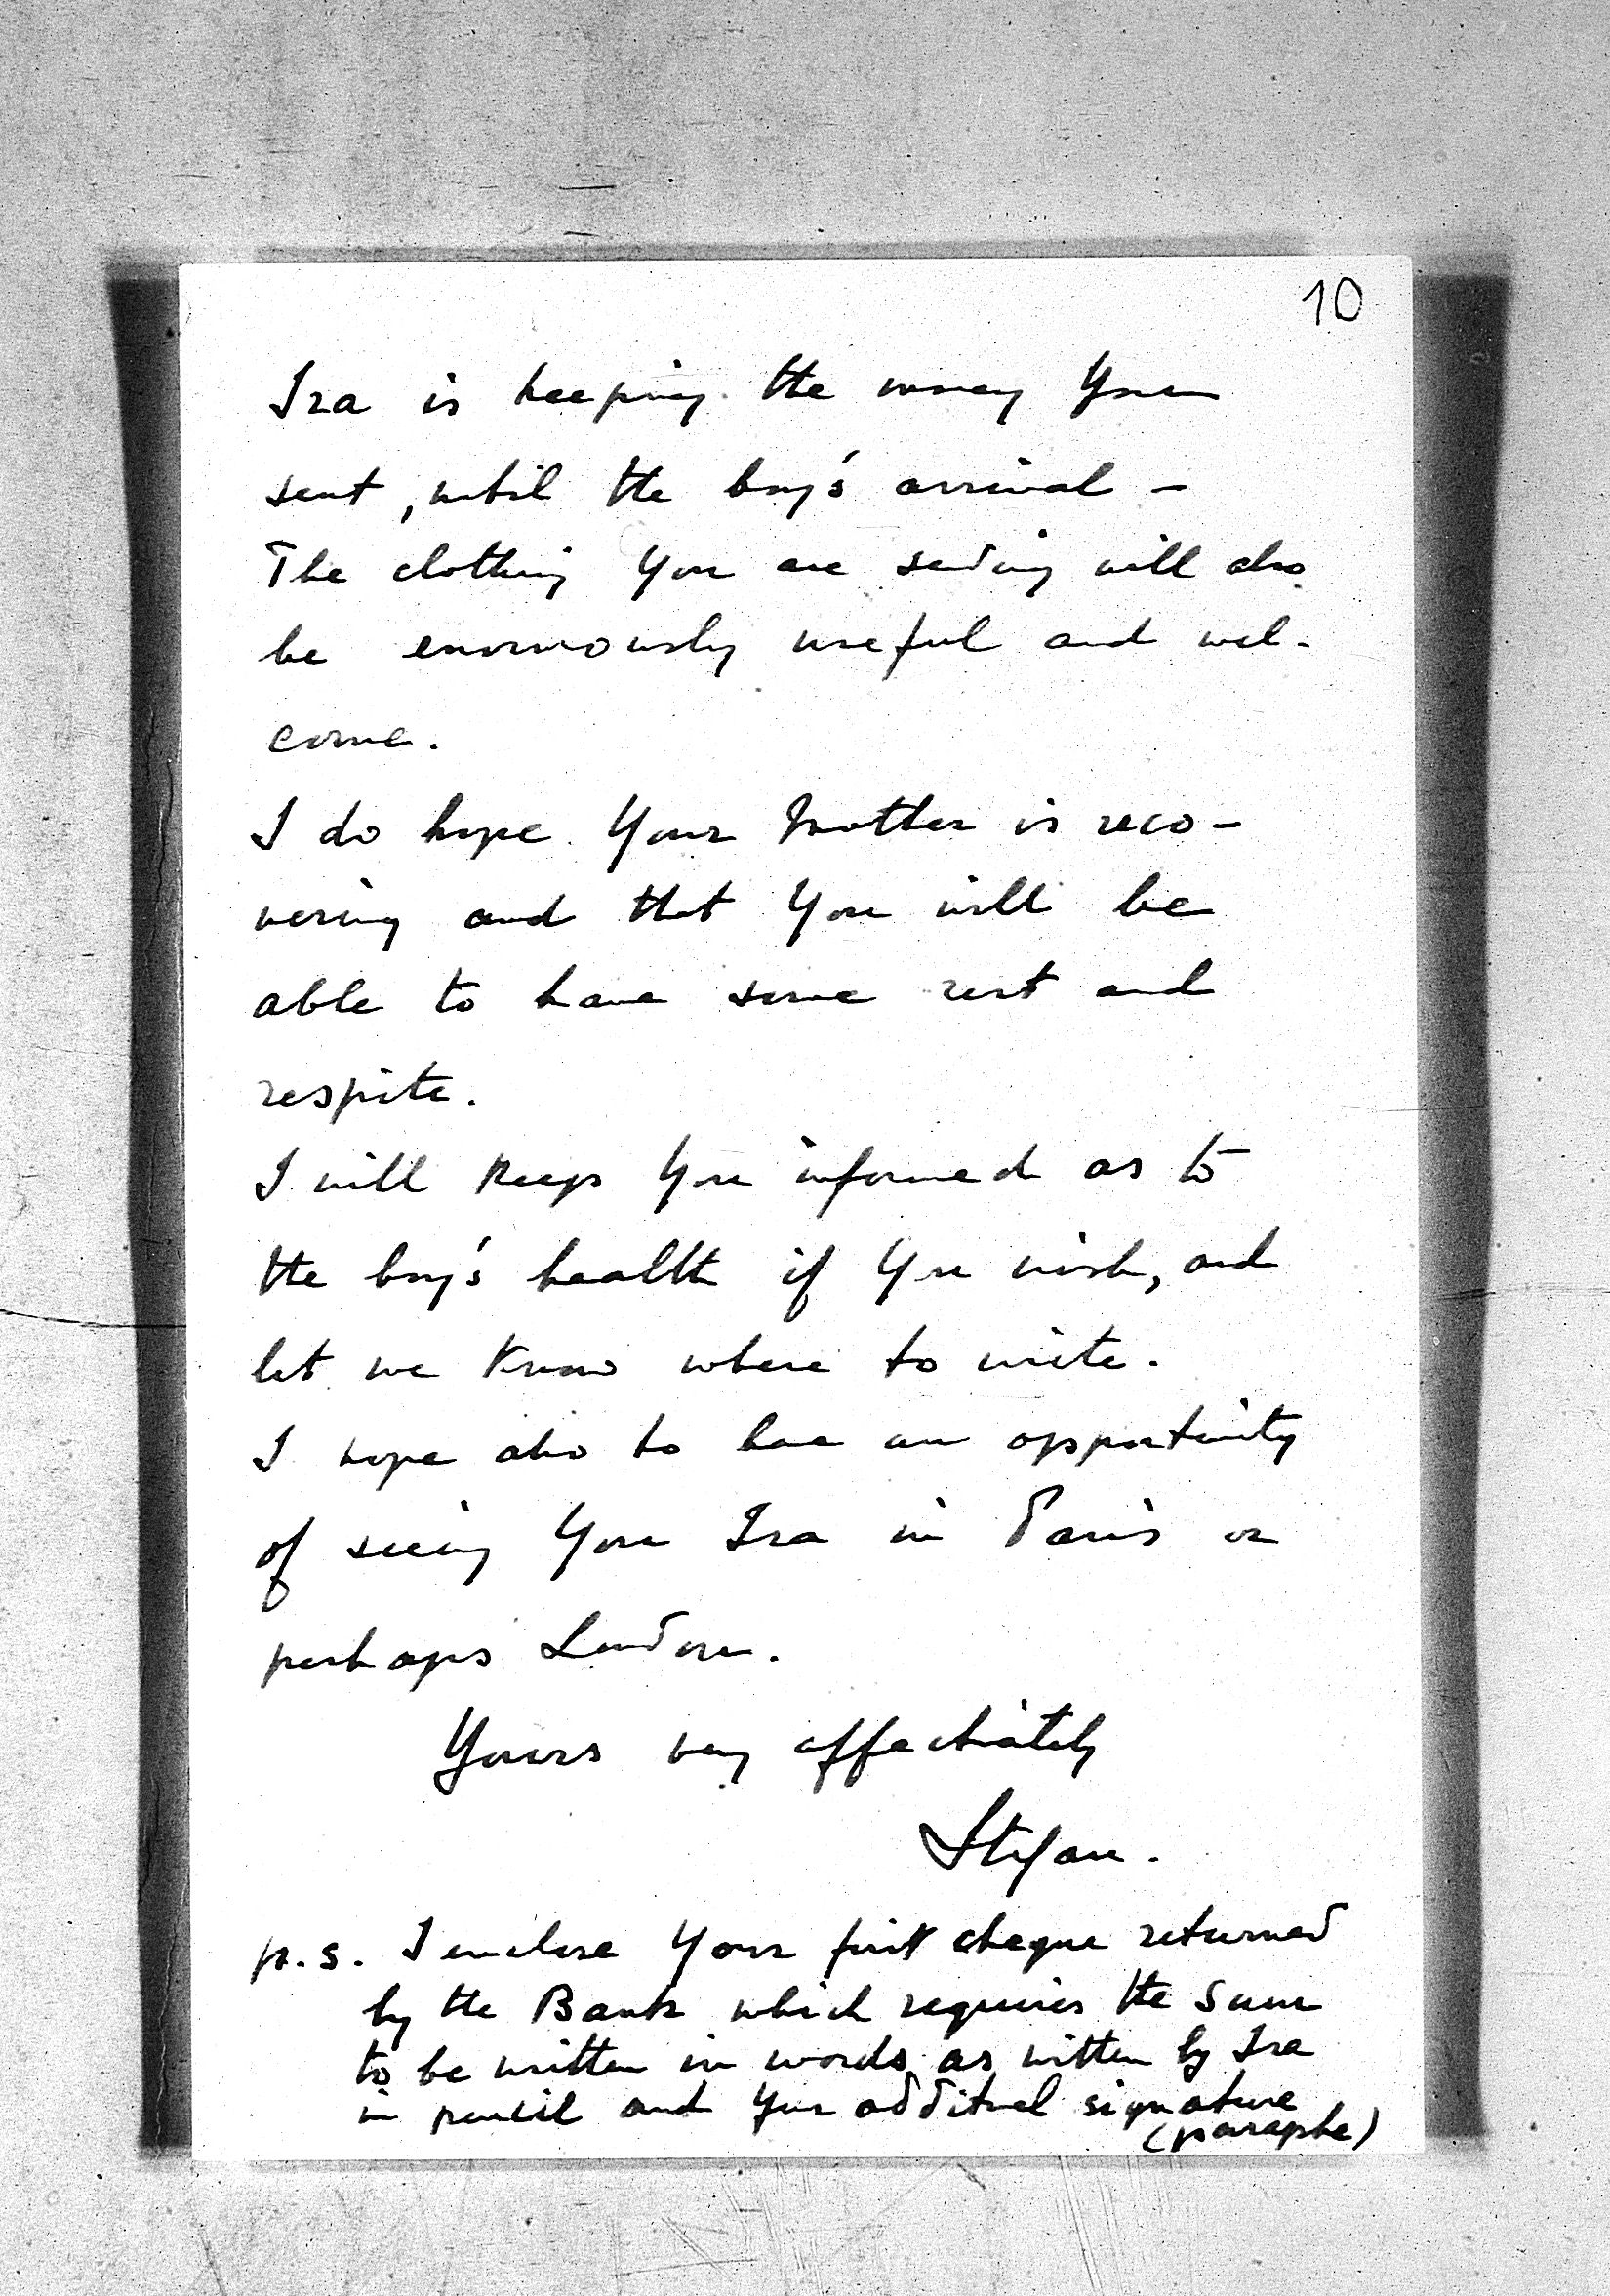 10
Ira is keeping the money You
sent, until the boy's arrival –
The clothing You are sending will also
be enormously useful and wel-
come.
I do hope Your Mother is reco-
vering and that You will be
able to have some rest and
respite.
I will keep You informed as to
the boy's health if You wish, and
let me know where to write.
I hope also to have an opportunity
of seeing You Ira in Paris or
perhaps London.
Yours very affectiately
Stefan.
p.s. I enclose Your first cheque returned
by the Bank which requires the sum
to be written in words as written by Ira
in pencil and Your additnal signature
(paraphe)